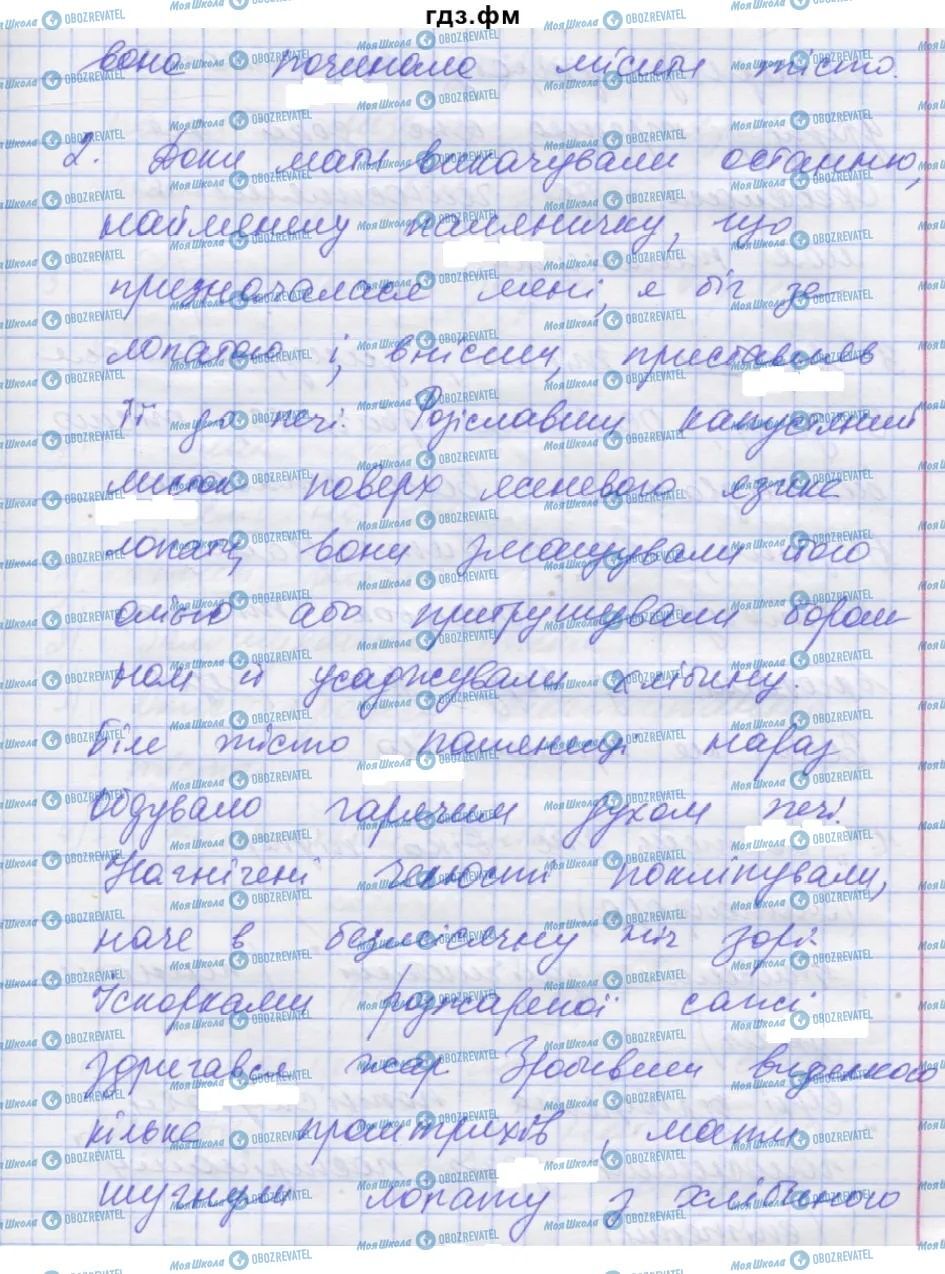 гдз.фм
вона починала місити тісто.
2. Доки мати викачували останню,
найменшу паляничку, що
призначалася мені, я біг за
лопатою і, внісши, приставляв
її до печі. Розіславши капустяний
листок поверх ясеневого язика
лопати, вони змащували його
олією або притрушували борош-
ном й усаджували хлібину.
Біле тісто паляниці нараз
обдувало гарячим духом печі.
Нагнічені челюсті покліпували,
наче в безмісячну ніч зорі.
Іскорками розжареної сажі
здригався жар. Зробивши виделкою
кілька проштрихів, мати
шугнули лопату з хлібиною